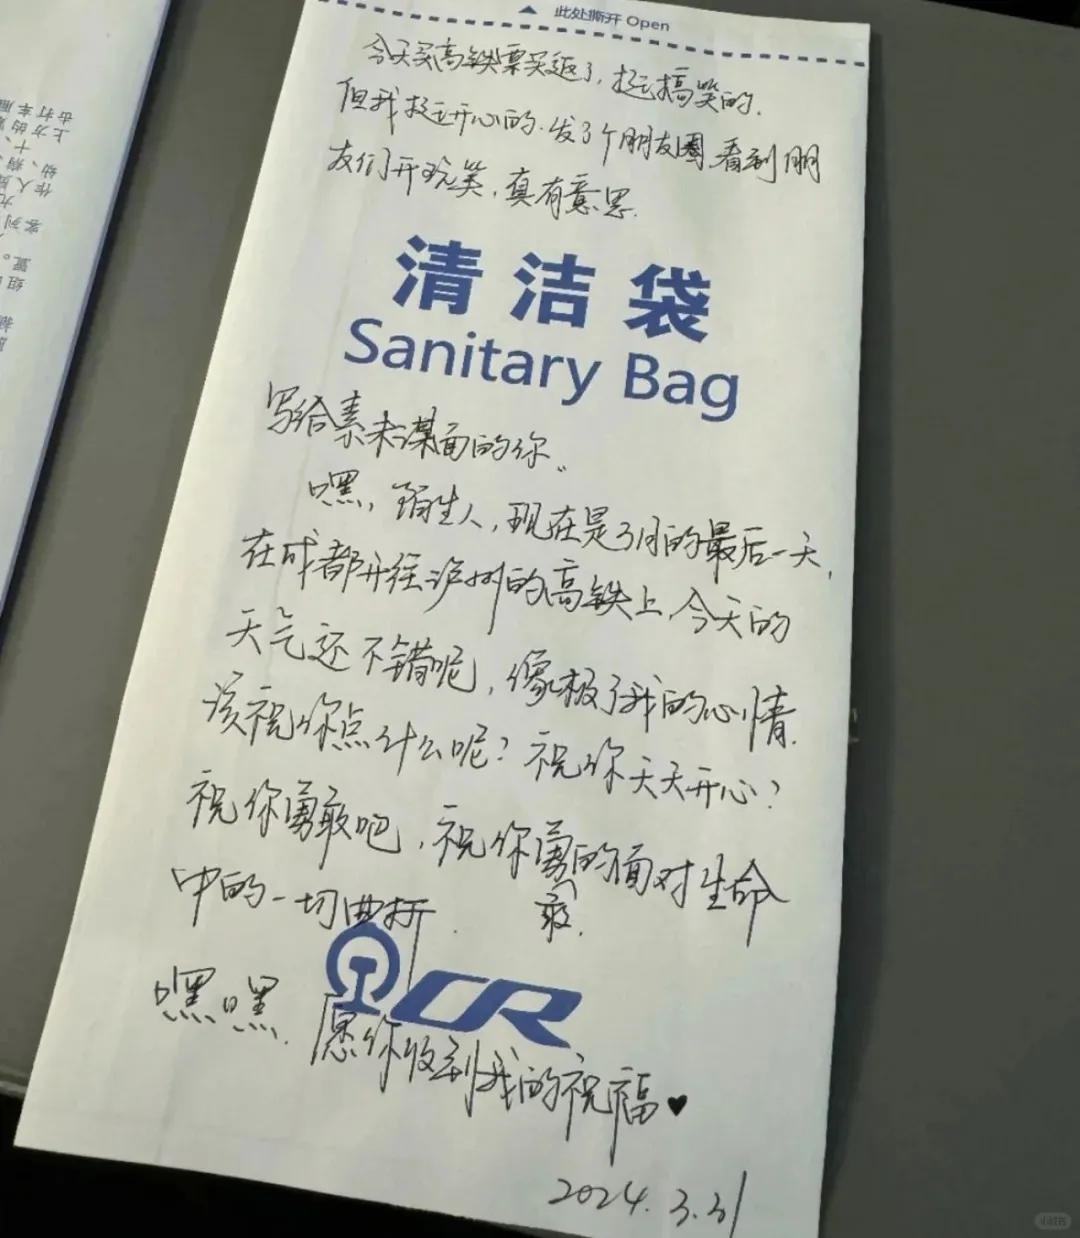 此处撕开 Open
今天买高铁票买返了，挺搞笑的.
但我挺开心的.发了个朋友圈,看到朋
友们开玩笑，真有意思.
清洁袋
Sanitary Bag
写给素未谋面的你.
嘿，陌生人，现在是3月的最后一天，
在成都开往泸州的高铁上,今天的
天气还不错呢，像极了我的心情.
该祝你点什么呢？祝你天天开心？
祝你勇敢吧，祝你勇敢的面对生命
中的一切曲折.
CR
嘿嘿.愿你收到我的祝福♥
2024.3.31